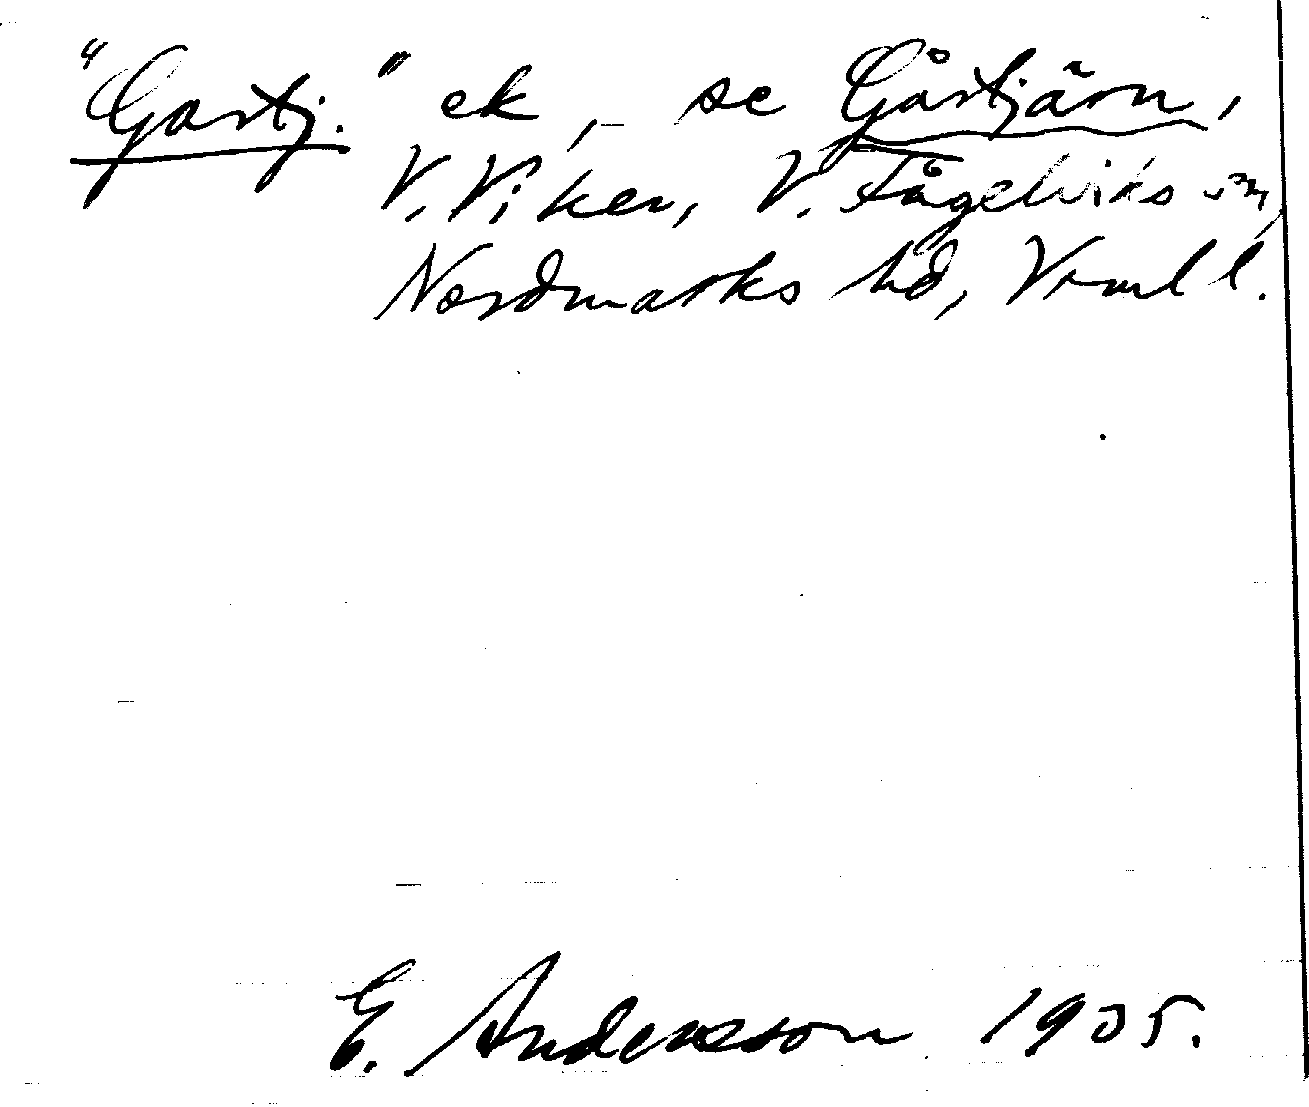 "Gartj." ek, se Gårtjärn,
V. Viker, V. Fågelviks sn,
Nordmarks hd, Vrml l.
E. Andersson 1935.